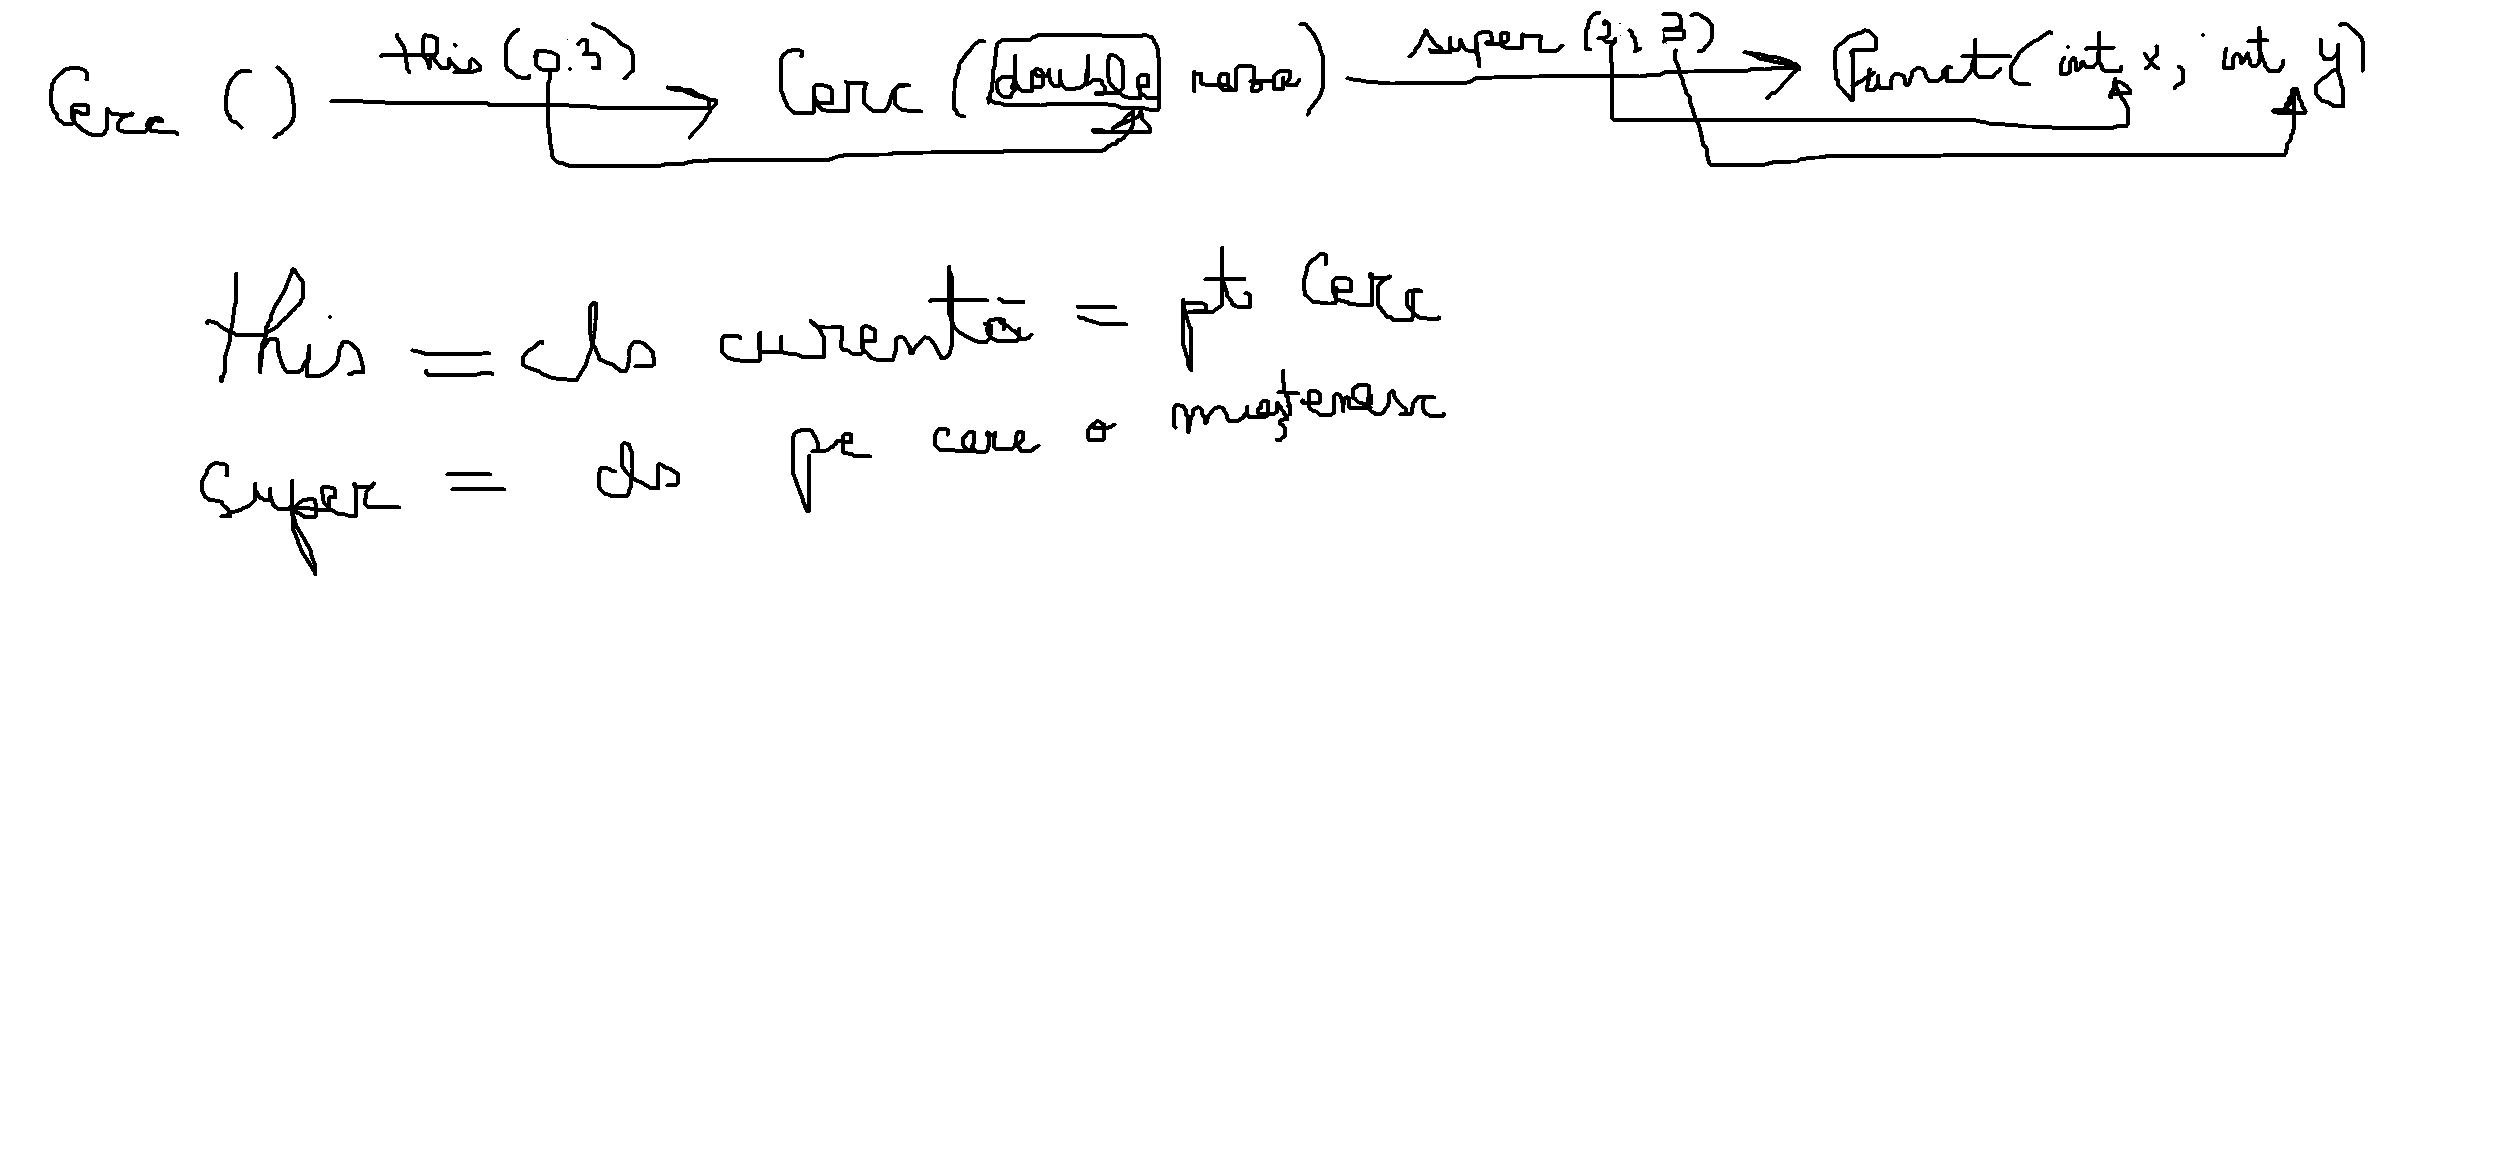 Cerc () this (0.3) Cerc (double raza) super (2, 3) Punct (int x, int y)
this = cls curentă = pt Cerc
super = cls pe care o moștenesc